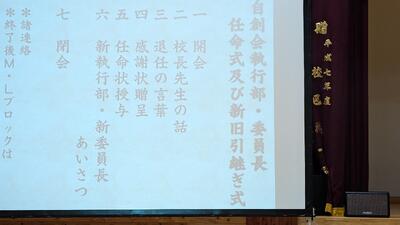 自創会執行部・委員長
任命式及び新旧引継ぎ式
一 開会
二 校長先生の話
三 退任の言葉
四 感謝状贈呈
五 任命状授与
六 新執行部・新委員長
あいさつ
七 閉会
＊諸連絡
＊終了後M・Lブロックは
贈
平成七年度